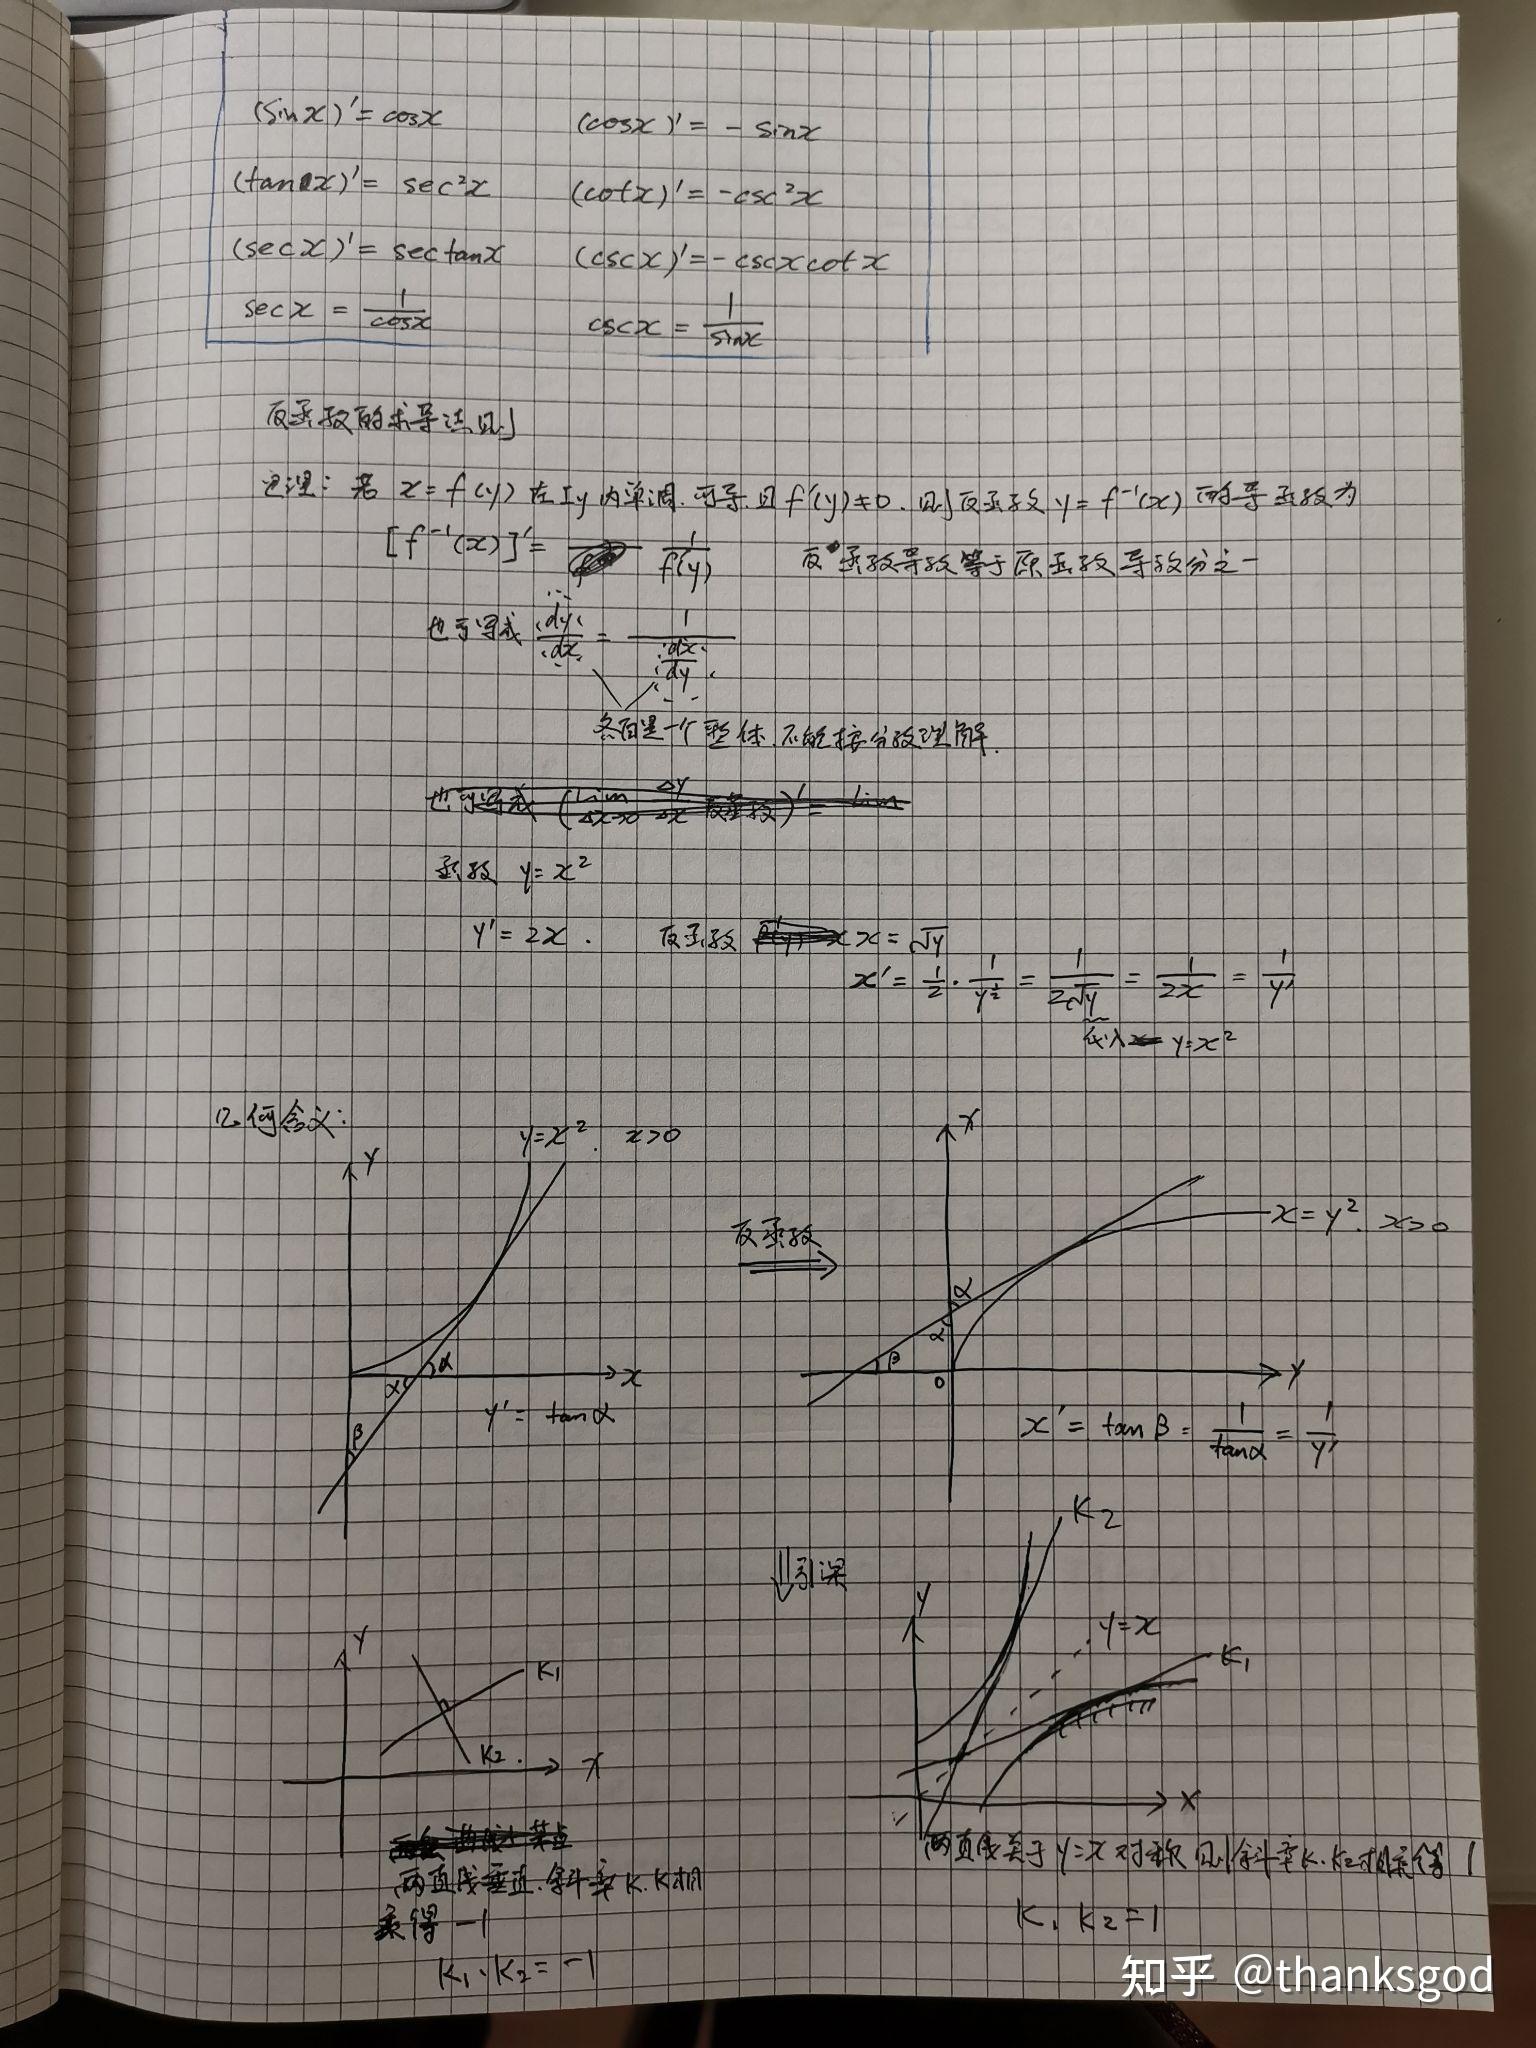 (sinx)'= cosx (cosx)'= - sinx
(tanx)'= sec²x (cotx)'= -csc²x
(secx)'= sectanx (cscx)'= -cscxcotx
secx = 1/cosx cscx = 1/sinx
反函数的求导法则
定理: 若 x=f(y) 在 Iy 内单调.可导.且 f'(y)≠0. 则反函数 y=f⁻¹(x) 的导函数为
[f⁻¹(x)]'= 1/f'(y) 反函数导数等于原函数导数分之一
也可写成 dy/dx = 1/(dx/dy)
各自是一个整体.不能按分数理解.
函数 y=x²
y'=2x. 反函数 x=√y
x'= 1/2 · 1/y^(1/2) = 1/(2√y) = 1/2x = 1/y'
代入 y=x²
几何含义:
y=x². x>0
y
x
α
α
β
y'= tanα
反函数
x
x=y². x>0
α
α
β
0
y
x'= tanβ = 1/tanα = 1/y'
引深
y
K1
K2.
x
两直线垂直.斜率K.K相
乘得 -1
K1·K2=-1
K2
y
y=x
K1
x
两直线关于 y=x 对称 则斜率K.K2相乘得 1
K1 K2=1
知乎 @thanksgod